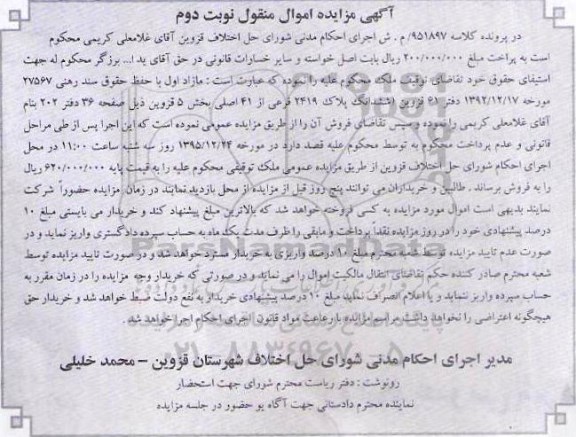 آگهی مزایده اموال منقول نوبت دوم
در پرونده کلاسه ۹۵۱۸۹۷/م . ش اجرای احکام مدنی شورای حل اختلاف قزوین آقای غلامعلی کریمی محکوم
است به پراخت مبلغ ۲۰۰/۰۰۰/۰۰۰ ریال بابت اصل خواسته و سایر خسارات قانونی در حق آقای ید ا... برزگر محکوم له جهت
استیفای حقوق خود تقاضای توقیف ملک محکوم علیه را نموده که عبارت است : مازاد اول با حفظ حقوق سند رهنی ۲۷۵۶۷
مورخه ۱۳۹۲/۱۲/۱۷ دفتر ۶۱ قزوین اششدانگ پلاک ۲۴۱۹ فرعی از ۴۱ اصلی بخش ۵ قزوین ذیل صفحه ۳۶ دفتر ۲۰۲ بنام
آقای غلامعلی کریمی را نموده و سپس تقاضای فروش آن را از طریق مزایده عمومی نموده است که این اجرا پس از طی مراحل
قانونی و عدم پرداخت محکوم به توسط محکوم علیه قصد دارد در مورخه ۱۳۹۵/۱۲/۲۴ روز سه شنبه ساعت ۱۱:۰۰ در محل
اجرای احکام شورای حل اختلاف قزوین از طریق مزایده عمومی ملک توقیفی محکوم علیه را به قیمت پایه ۶۲۰/۰۰۰/۰۰۰ ریال
را به فروش برساند . طالبین و خریداران می توانند پنج روز قبل از مزایده از محل بازدید نمایند در زمان مزایده حضوراً شرکت
نمایند بدیهی است اموال مورد مزایده به کسی فروخته خواهد شد که بالاترین مبلغ پیشنهاد کند و خریدار می بایستی مبلغ ۱۰
درصد پیشنهادی خود را در روز مزایده نقدا پرداخت و مابقی را ظرف مدت یک ماه به حساب سپرده دادگستری واریز نماید و در
صورت عدم تایید مزایده توسط شعبه محترم مبلغ ۱۰ درصد واریزی به خریدار مسترد خواهد شد و در صورت تایید مزایده توسط
شعبه محترم صادر کننده حکم تقاضای انتقال مالکیت اموال را می نماید و در صورتی که خریدار وجه مزایده را در زمان مقرر به
حساب سپرده واریز ننماید و یا اعلام انصراف نماید مبلغ ۱۰ درصد پیشنهادی خریدار به نفع دولت ضبط خواهد شد و خریدار حق
هیچگونه اعتراضی را نخواهد داشت مراسم مزایده با رعاعت مواد قانون اجرای احکام اجرا خواهد شد .
مدیر اجرای احکام مدنی شورای حل اختلاف شهرستان قزوین – محمد خلیلی
رونوشت : دفتر ریاست محترم شورای جهت استحضار
نماینده محترم دادستانی جهت آگاه یو حضور در جلسه مزایده
ParsNamadData
۰۲۱-۸۸۳۴۹۶۷۰-۵